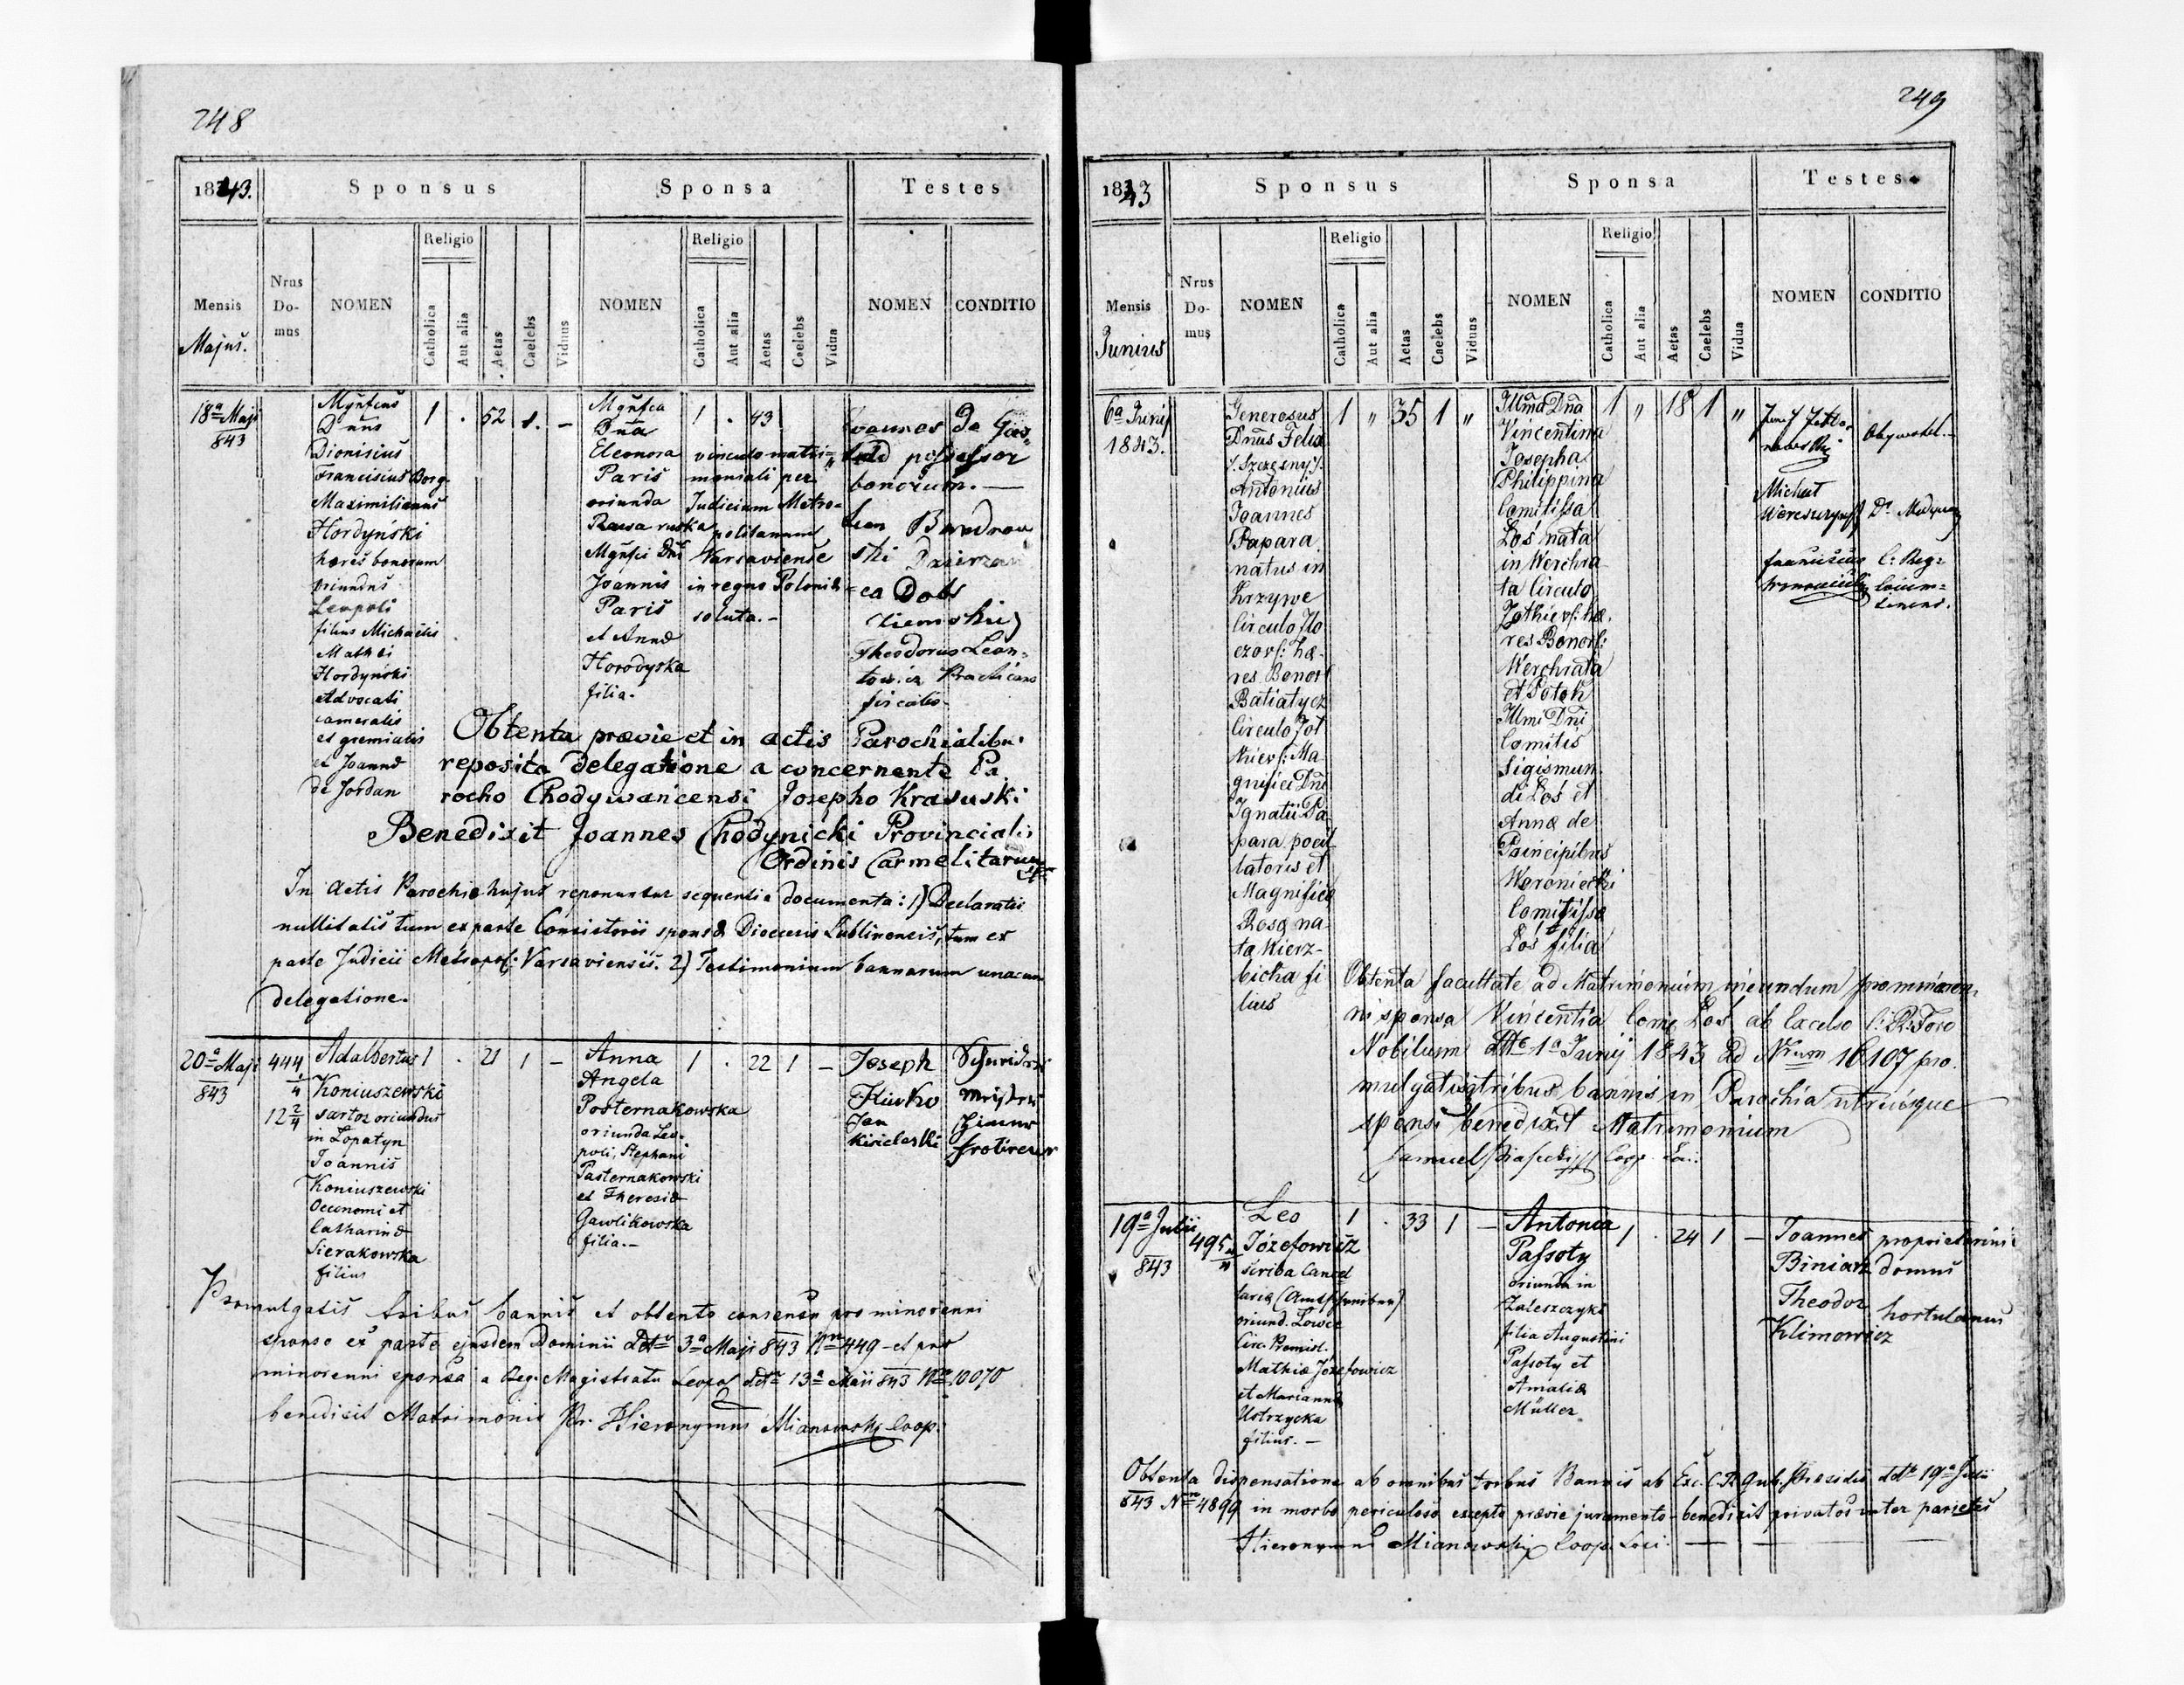 248
1843.
Sponsus
Sponsa
Testes
Mensis
Majus.
Nrus Do-mus
NOMEN
Religio
Catholica
Aut alia
Aetas
Caelebs
Viduus
NOMEN
Religio
Catholica
Aut alia
Aetas
Caelebs
Vidua
NOMEN
CONDITIO
18ª Maji
843
Mgnfcus
Dnus
Dionisius
Franciscus Borg.
Maximilianus
Hordyński
hæres bonorum
oriundus
Leopoli
filius Michaëlis
Mathei
Hordyński
Advocati
cameralis
et gremialis
et Joannæ
de Jordan
1 . 52 1. –
Mgnfca
Dna
Eleonora
Paris
oriunda
Rawa ruska
Mgnfci Dni
Joannis
Paris
et Annæ
Horodyska
filia.
1 . 43
vinculo matri=
moniali per
Judicium Metro=
politanum
Varsaviense
in regno Poloniæ
soluta.–
Ioannes de
possessor
bonorum.—
Dzierzaw
=ca Dobr
Ziemskich
Theodorus Leon=
towicz Practicans
fiscalis
Obtenta prævie et in actis Parochialibus
reposita delegatione a concernente Pa
rocho Chodywańcensi Josepho Krasuski
Benedixit Joannes Chodynicki Provincialis
Ordinis Carmelitarum
In actis Parochiæ hujus reponuntur sequentia documenta: 1) Declaratio
nullitatis tum ex parte Consistorii sponsæ Diœcesis Lublinensis, tum ex
parte Judicii Metropol: Varsaviensis. 2) Testimonium bannorum unacum
delegatione.
20ª Maji
843
444
4
12 2/4
Adalbertus
Koniuszewski
sartor oriundus
in Lopatyn
Joannis
Koniuszewski
Oeconomi et
Catharinæ
Sierakowska
filius
1 . 21 1 –
Anna
Angela
Posternakowska
oriunda Leo-
poli, Stephani
Pasternakowski
et Theresiæ
Gawlikowska
filia.–
1 . 22 1 –
Joseph
Jan
Kisielewski
Promulgatis tribus bannis et obtento consensu pro minorenni
sponso ex parte ejusdem Dominii ddto 3ª Maji 843 Nro 449 – et pro
minorenni sponsa a Reg. Magistratu Leopol ddto 13ª Maii 843 Nro 10070
benedixit Matrimonio Pr. Hieronymus Mianowski Coop.
249
1843
Sponsus
Sponsa
Testes
Mensis
Junius
Nrus Do-mus
NOMEN
Religio
Catholica
Aut alia
Aetas
Caelebs
Viduus
NOMEN
Religio
Catholica
Aut alia
Aetas
Caelebs
Vidua
NOMEN
CONDITIO
6ª Junij
1843.
Generosus
Dnus Felix
/.Szczęsny/.
Antonius
Joannes
Papara
natus in
Krzywe
Circulo Zło
czovs: hæ-
res Bonor:
Batiatycz
Circulo Żoł
kievs: Ma
gnifici Dni
Ignatii Pa
para pocil
latoris et
Magnificæ
Rosa na-
ta Wierz-
bicka fi
lius
1 „ 35 1 „
Illma Dna
Vincentina
Josepha
Philippina
Comitissa
Łoś nata
in Werchra
ta Circulo
Żołkievs: hæ.
res Bonor:
Werchrata
et Potok
Illmi Dni
Comitis
Sigismun-
di Łoś et
Anna de
Principibus
Woroniecki
Comitissæ
Łoś filia
1 „ 18 1 „
Józef Jabło-
nowski
Obywatel.–
Michał
Wereszczyński
Franciscus
Obtenta facultate ad Matrimonium ineundum pro minoren
ni sponsa Vincentia Comit. Łoś ab Excelso C: R: Foro
Nobilium ddto 1ª Junij 1843 ad Nrum 16107 pro
mulgatis tribus bannis in Parochia utriusque
sponsi benedixit Matrimonium
Samuel Coop.
19ª Julii
843
495
4
Leo
Józefowicz
scriba Cancel
lariæ (Amtsschreiber)
oriund. Łowce
Circ. Premisl.
Mathiæ Józefowicz
et Mariannæ
Ustrzycka
filius.–
1 . 33 1 –
Antonia
Passoty
oriunda in
Zaleszczyki
filia Augustini
Passoty et
Amaliæ
Müller.
1 . 24 1 –
Joannes
Biniarz
proprietarius
domus
Theodor
Klimowicz
hortulanus
Obtenta dispensatione ab omnibus tribus Bannis ab Exc. C. R. Gub. Præsidio ddto 19ª Julii
843 Nro 4899 in morbo periculoso excepto prævie juramento – benedixit privatos inter parietes
Hieronymus Mianowski Coop. Loci.